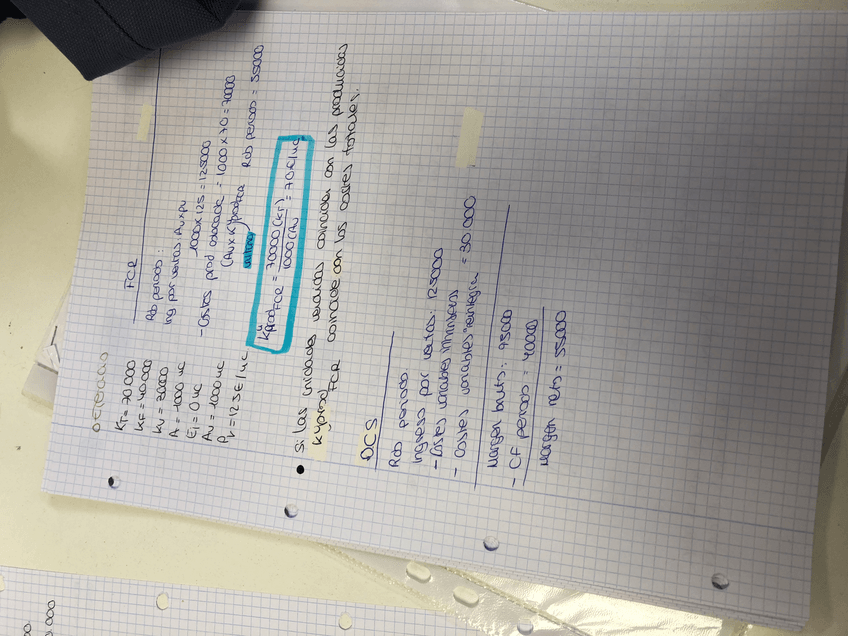 KT = 70.000
KF = 40.000
KV = 30000
A = 1000 uc
Ei = 0 uc
Av = 1000 uc
Pv = 125€/uc
FCR
Rdo periodo:
Ing por ventas: Av x pv
1000 x 125 = 125000
- Costes prod = 1000 x 70 = 70000
(Av x Kyprod FCR
Rdo periodo = 55000
Kyprod FCR = 70000 (KT) / 1000 (Av = 70€/uc
• Si las unidades vendidas coinciden con las producidas
Kyprod FCR coincide con los costes totales.
DCS
Rdo periodo.
Ingreso por ventas: 125000
- Costes variables
- Costes variables = 30.000
Margen bruto: 95000
- CF periodo = 40000
Margen neto = 55000
0.000
00